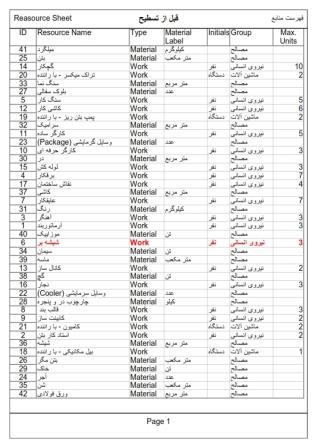 Reasource Sheet قبل از تسطیح فهرست منابع
ID Resource Name Type Material Label Initials Group Max. Units
41 میلگرد Material کیلوگرم مصالح
25 بتن Material متر مکعب مصالح
14 گچکار Work نفر نیروی انسانی 10
20 تراک میکسر - با راننده Work دستگاه ماشین آلات 2
33 سنگ نما Material متر مربع مصالح
27 بلوک سفالی Material عدد مصالح
5 سنگ کار Work نفر نیروی انسانی 5
12 کاشی کار Work نفر نیروی انسانی 6
19 پمپ بتن ریز - با راننده Work دستگاه ماشین آلات 2
32 سرامیک Material متر مربع مصالح
11 کارگر ساده Work نفر نیروی انسانی 5
23 وسایل گرمایشی (Package) Material عدد مصالح
10 کارگر حرفه ای Work نفر نیروی انسانی 3
30 در Material متر مربع مصالح
15 لوله کش Work نفر نیروی انسانی 3
4 برقکار Work نفر نیروی انسانی 7
17 نقاش ساختمان Work نفر نیروی انسانی 4
37 کاشی Material متر مربع مصالح
7 عایقکار Work نفر نیروی انسانی 7
31 رنگ Material کیلوگرم مصالح
3 آهنگر Work نفر نیروی انسانی 3
1 آرماتوربند Work نفر نیروی انسانی 3
40 موزاییک Material تن مصالح
6 شیشه بر Work نفر نیروی انسانی 3
34 سیمان Material تن مصالح
39 ماسه Material متر مکعب مصالح
13 کانال ساز Work نفر نیروی انسانی 2
38 گچ Material تن مصالح
16 نجار Work نفر نیروی انسانی 3
22 وسایل سرمایشی (Cooler) Material عدد مصالح
28 چارچوب در و پنجره Material کیلو مصالح
8 قالب بند Work نفر نیروی انسانی 3
9 کابینت ساز Work نفر نیروی انسانی 2
21 کامیون - با راننده Work دستگاه ماشین آلات 2
2 استاد کار بتن Work نفر نیروی انسانی 2
36 شیشه Material متر مربع مصالح
18 بیل مکانیکی - با راننده Work دستگاه ماشین آلات 1
26 بتن مگر Material متر مکعب مصالح
29 خاک Material تن مصالح
24 آجر Material عدد مصالح
35 شن Material متر مکعب مصالح
42 ورق فولادی Material متر مربع مصالح
Page 1